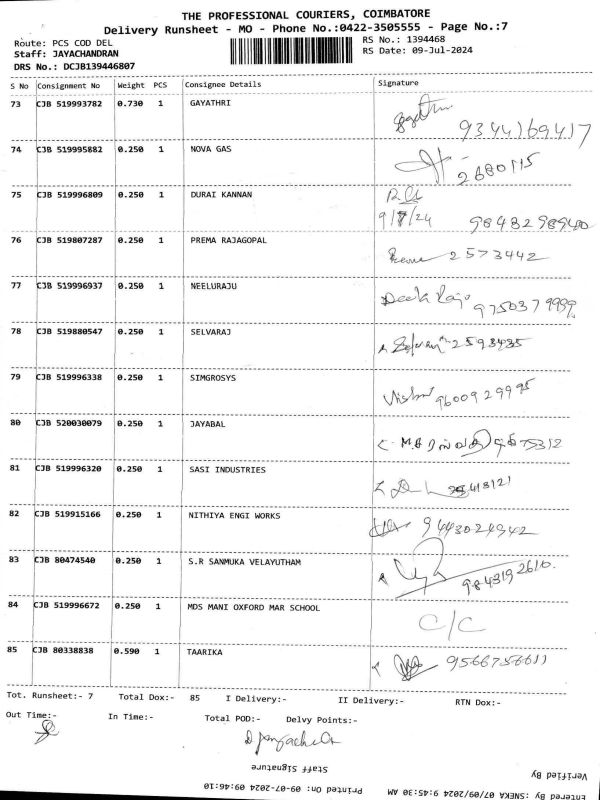 THE PROFESSIONAL COURIERS, COIMBATORE
Delivery Runsheet - MO - Phone No.:0422-3505555 - Page No.:7
Route: PCS COD DEL
RS No.: 1394468
Staff: JAYACHANDRAN
RS Date: 09-Jul-2024
DRS No.: DCJB139446807
S No Consignment No Weight PCS Consignee Details Signature
73 CJB 519993782 0.730 1 GAYATHRI
9344169417
74 CJB 519995882 0.250 1 NOVA GAS
2680115
75 CJB 519996809 0.250 1 DURAI KANNAN
9/7/24
76 CJB 519807287 0.250 1 PREMA RAJAGOPAL
2573442
77 CJB 519996937 0.250 1 NEELURAJU
9750379999
78 CJB 519880547 0.250 1 SELVARAJ
2593435
79 CJB 519996338 0.250 1 SIMGROSYS
9600929995
80 CJB 520030079 0.250 1 JAYABAL
81 CJB 519996320 0.250 1 SASI INDUSTRIES
82 CJB 519915166 0.250 1 NITHIYA ENGI WORKS
9443024942
83 CJB 80474540 0.250 1 S.R SANMUKA VELAYUTHAM
9843192610
84 CJB 519996672 0.250 1 MDS MANI OXFORD MAR SCHOOL
C/C
85 CJB 80338838 0.590 1 TAARIKA
9566756611
Tot. Runsheet:- 7 Total Dox:- 85 I Delivery:- II Delivery:- RTN Dox:-
Out Time:- In Time:- Total POD:- Delvy Points:-
Staff Signature
Verified By
Printed On: 09-07-2024 09:46:10
Entered By :SNEKA 07/09/2024 9:45:30 AM